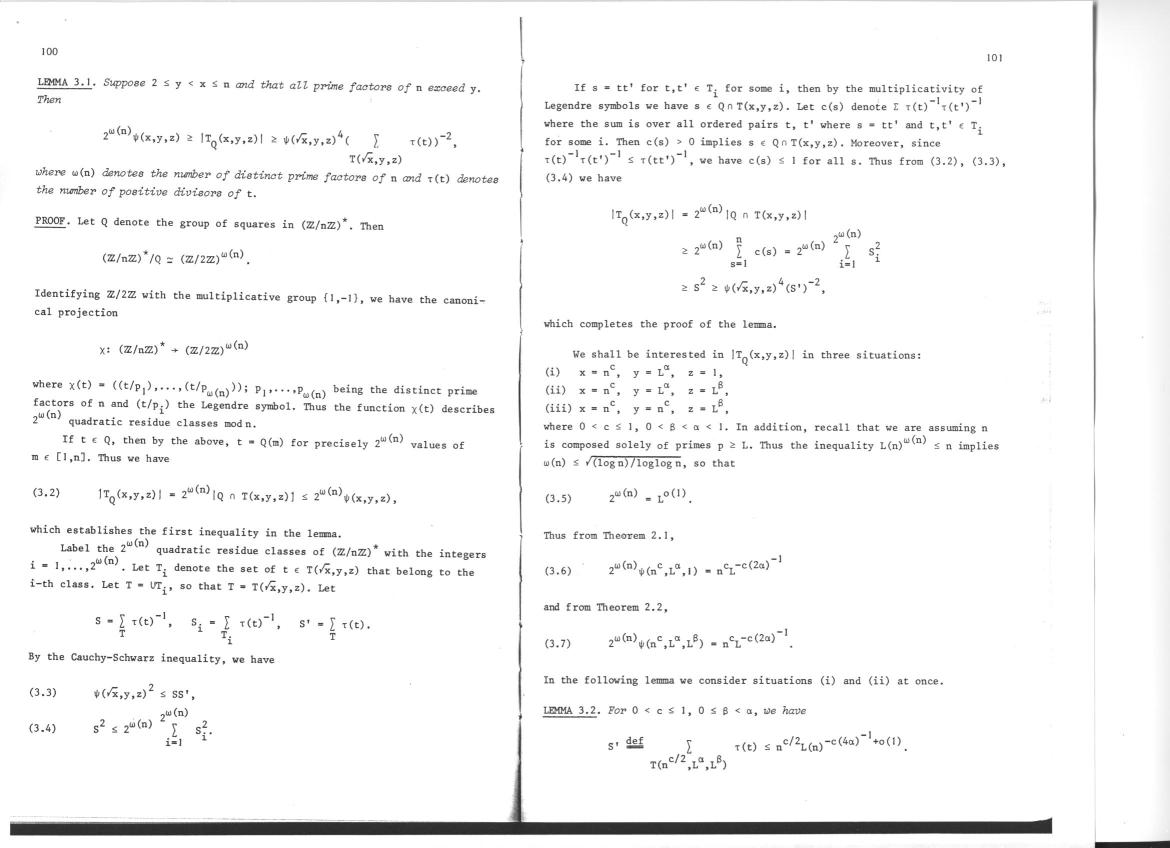 100
LEMMA 3.1. Suppose 2 ≤ y < x ≤ n and that all prime factors of n exceed y.
Then
2^{ω(n)}ψ(x,y,z) ≥ |T_Q(x,y,z)| ≥ ψ(√x,y,z)^4( Σ_{T(√x,y,z)} τ(t))^{-2},
where ω(n) denotes the number of distinct prime factors of n and τ(t) denotes
the number of positive divisors of t.
PROOF. Let Q denote the group of squares in (ℤ/nℤ)^*. Then
(ℤ/nℤ)^*/Q ≃ (ℤ/2ℤ)^{ω(n)}.
Identifying ℤ/2ℤ with the multiplicative group {1,-1}, we have the canoni-
cal projection
χ: (ℤ/nℤ)^* → (ℤ/2ℤ)^{ω(n)}
where χ(t) = ((t/p_1),...,(t/p_{ω(n)})); p_1,...,p_{ω(n)} being the distinct prime
factors of n and (t/p_i) the Legendre symbol. Thus the function χ(t) describes
2^{ω(n)} quadratic residue classes mod n.
If t ∈ Q, then by the above, t = Q(m) for precisely 2^{ω(n)} values of
m ∈ [1,n]. Thus we have
(3.2) |T_Q(x,y,z)| = 2^{ω(n)}|Q ∩ T(x,y,z)| ≤ 2^{ω(n)}ψ(x,y,z),
which establishes the first inequality in the lemma.
Label the 2^{ω(n)} quadratic residue classes of (ℤ/nℤ)^* with the integers
i = 1,...,2^{ω(n)}. Let T_i denote the set of t ∈ T(√x,y,z) that belong to the
i-th class. Let T = ∪T_i, so that T = T(√x,y,z). Let
S = Σ_T τ(t)^{-1}, S_i = Σ_{T_i} τ(t)^{-1}, S' = Σ_T τ(t).
By the Cauchy-Schwarz inequality, we have
(3.3) ψ(√x,y,z)^2 ≤ SS',
(3.4) S^2 ≤ 2^{ω(n)} Σ_{i=1}^{2^{ω(n)}} S_i^2.
101
If s = tt' for t,t' ∈ T_i for some i, then by the multiplicativity of
Legendre symbols we have s ∈ Q ∩ T(x,y,z). Let c(s) denote Σ τ(t)^{-1}τ(t')^{-1}
where the sum is over all ordered pairs t, t' where s = tt' and t,t' ∈ T_i
for some i. Then c(s) > 0 implies s ∈ Q ∩ T(x,y,z). Moreover, since
τ(t)^{-1}τ(t')^{-1} ≤ τ(tt')^{-1}, we have c(s) ≤ 1 for all s. Thus from (3.2), (3.3),
(3.4) we have
|T_Q(x,y,z)| = 2^{ω(n)}|Q ∩ T(x,y,z)|
≥ 2^{ω(n)} Σ_{s=1}^{n} c(s) = 2^{ω(n)} Σ_{i=1}^{2^{ω(n)}} S_i^2
≥ S^2 ≥ ψ(√x,y,z)^4(S')^{-2},
which completes the proof of the lemma.
We shall be interested in |T_Q(x,y,z)| in three situations:
(i) x = n^c, y = L^α, z = 1,
(ii) x = n^c, y = L^α, z = L^β,
(iii) x = n^c, y = n^c, z = L^β,
where 0 < c ≤ 1, 0 < β < α < 1. In addition, recall that we are assuming n
is composed solely of primes p ≥ L. Thus the inequality L(n)^{ω(n)} ≤ n implies
ω(n) ≤ √(log n)/loglog n, so that
(3.5) 2^{ω(n)} = L^{o(1)}.
Thus from Theorem 2.1,
(3.6) 2^{ω(n)}ψ(n^c,L^α,1) = n^cL^{-c(2α)^{-1}}
and from Theorem 2.2,
(3.7) 2^{ω(n)}ψ(n^c,L^α,L^β) = n^cL^{-c(2α)^{-1}}.
In the following lemma we consider situations (i) and (ii) at once.
LEMMA 3.2. For 0 < c ≤ 1, 0 ≤ β < α, we have
S' def= Σ_{T(n^{c/2},L^α,L^β)} τ(t) ≤ n^{c/2}L(n)^{-c(4α)^{-1}+o(1)}.